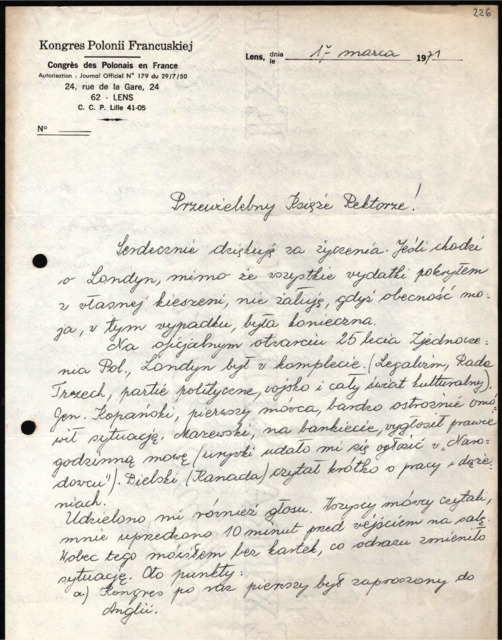 226
Kongres Polonii Francuskiej
Congrès des Polonais en France
Autorisation : Journal Officiel N° 179 du 29/7/50
24, rue de la Gare, 24
62 - LENS
C. C. P. Lille 41-05
N°
Lens, dnia le 17 marca 1971
Przewielebny Księże Rektorze!
Serdecznie dziękuję za życzenia. Jeśli chodzi
o Londyn, mimo że wszystkie wydatki pokryłem
z własnej kieszeni, nie żałuję, gdyż obecność mo-
ja, w tym wypadku, była konieczna.
Na oficjalnym otwarciu 25 lecia Zjednocze-
nia Pol., Londyn był w komplecie. (Legalizm, Rada
Trzech, partie polityczne, wojsko i cały świat kulturalny).
Gen. Kopański, pierwszy mówca, bardzo ostrożnie omó-
wił sytuację. Mazewski, na bankiecie, wygłosił prawie
godzinną mowę (urywki udało mi się ogłosić w „Naro-
dowcu"). Bielski (Kanada) czytał krótko o pracy i dąże-
niach.
Udzielono mi również głosu. Wszyscy mówcy czytali,
mnie uprzedzono 10 minut przed wejściem na salę.
Wobec tego mówiłem bez kartek, co odrazu zmieniło
sytuację. Oto punkty:
a) Kongres po raz pierwszy był zaproszony do
Anglii.